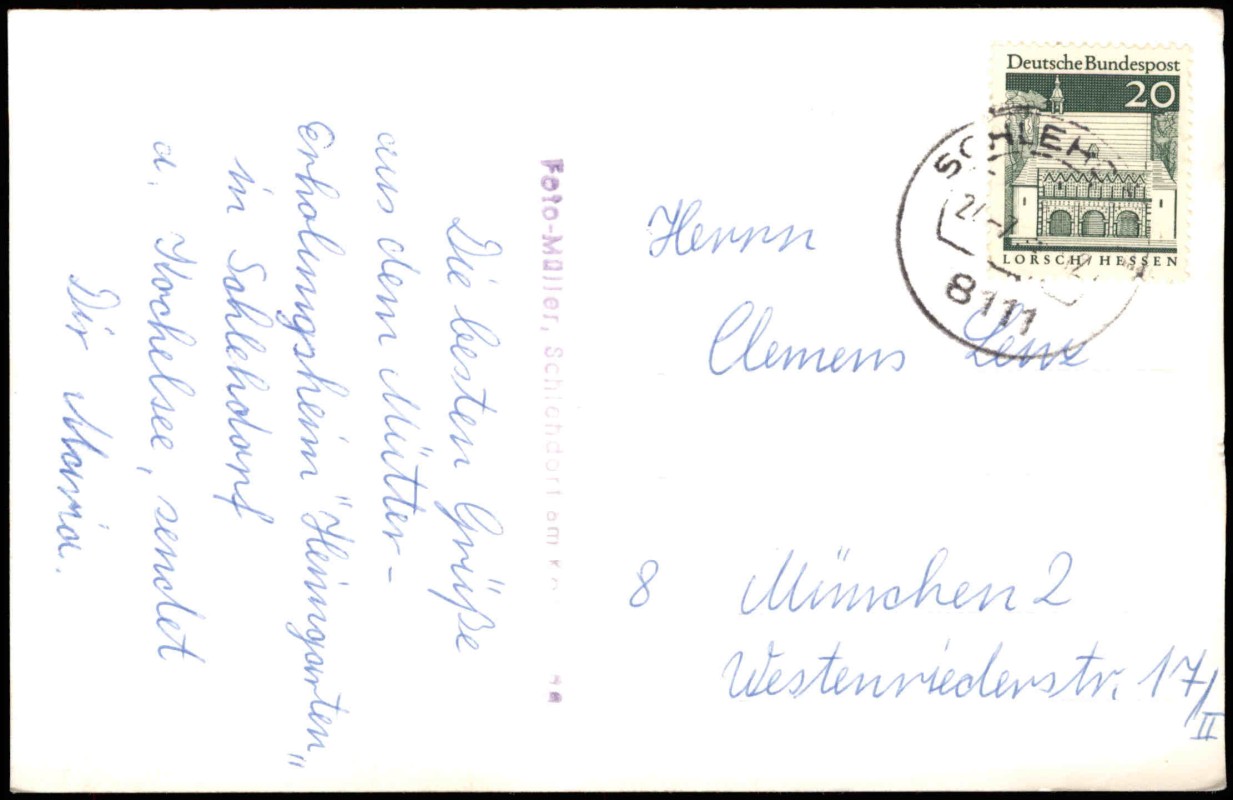 Die besten Grüße
aus dem Mütter-
Erholungsheim "Heimgarten"
in Schlehdorf
a. Kochelsee, sendet
Dir Maria.
Foto-Müller, Schlehdorf am
Deutsche Bundespost
20
LORSCH/HESSEN
SCHLEH
8111
Herrn
Clemens Lenz
8 München 2
Westenriederstr. 17/II